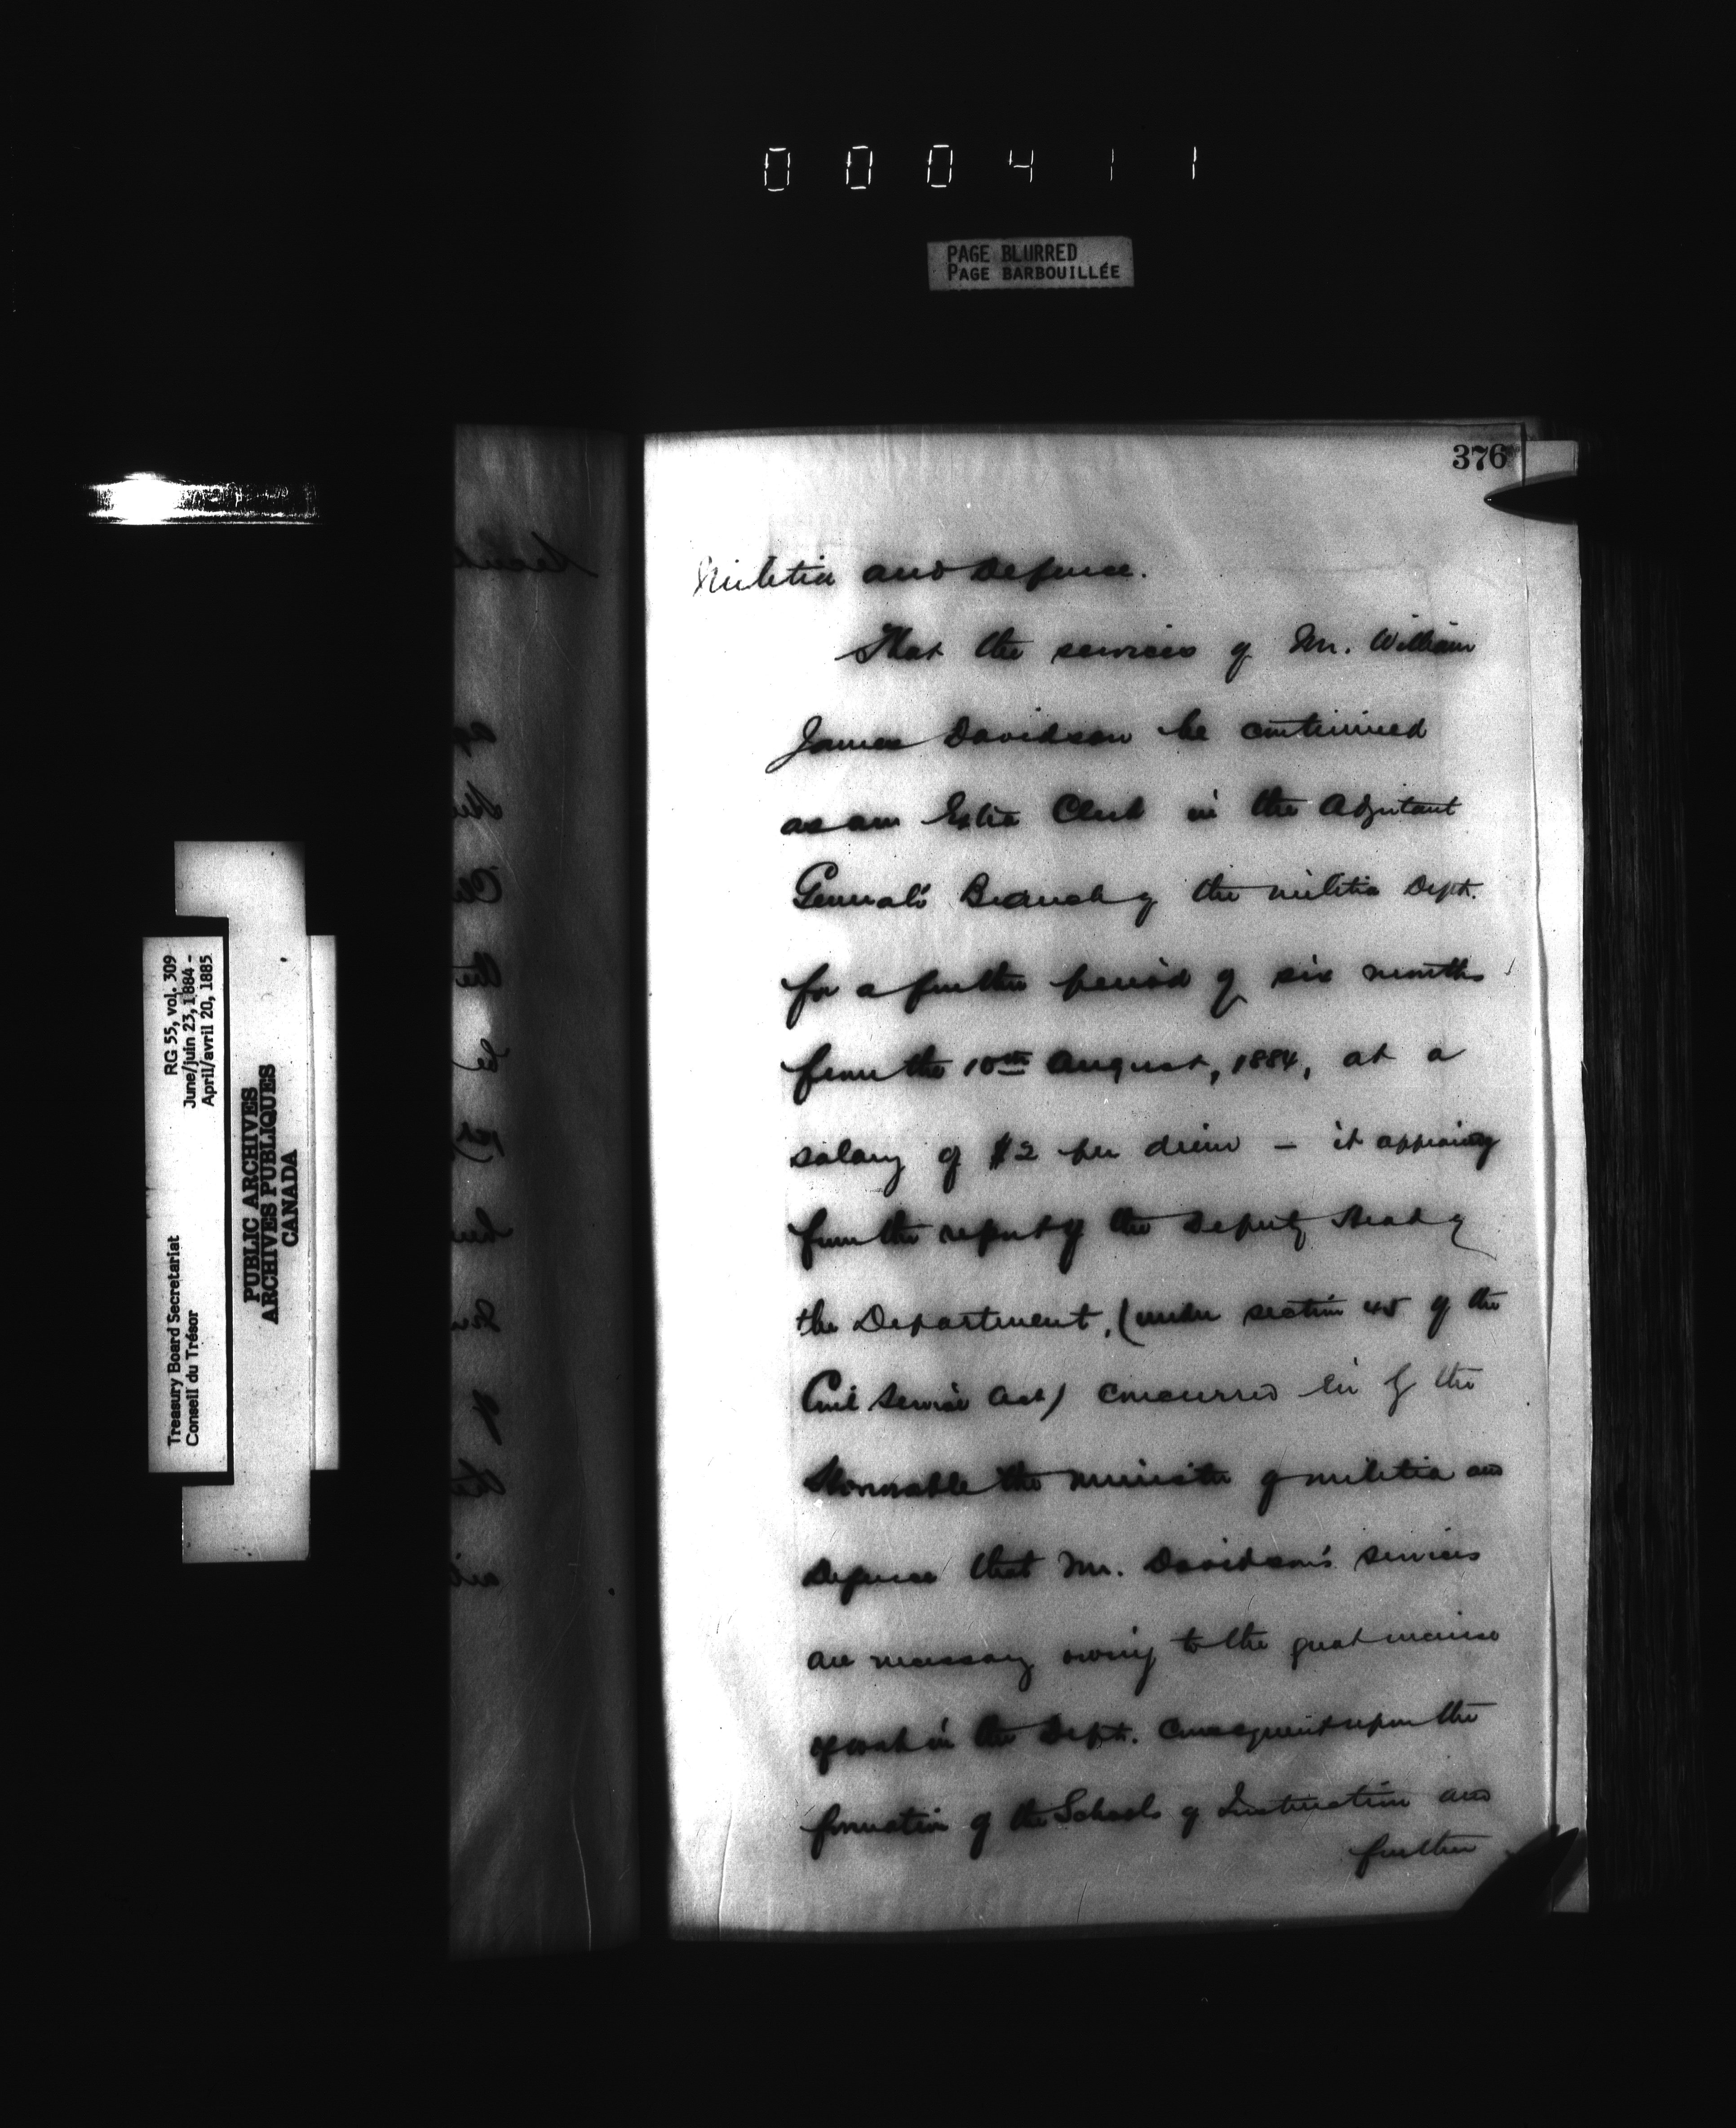 000411
PAGE BLURRED
PAGE BARBOUILLÉE
376
Militia and Defence.
That the services of Mr. William
James Davidson be continued
as an Extra Clerk in the Adjutant
General's Branch of the Militia Dept.
for a further period of six months
from the 10th August, 1884, at a
salary of $2 per diem — it appearing
from the report of the Deputy Head of
the Department, (under section 45 of the
Civil Service Act) concurred in by the
Honorable the Minister of Militia and
Defence that Mr. Davidson's services
are necessary owing to the great increase
of work in the Dept. consequent upon the
formation of the Schools of Instruction and
further
RG 55, vol. 309
June/juin 23, 1884 -
April/avril 20, 1885
Treasury Board Secretariat
Conseil du Trésor
PUBLIC ARCHIVES
ARCHIVES PUBLIQUES
CANADA